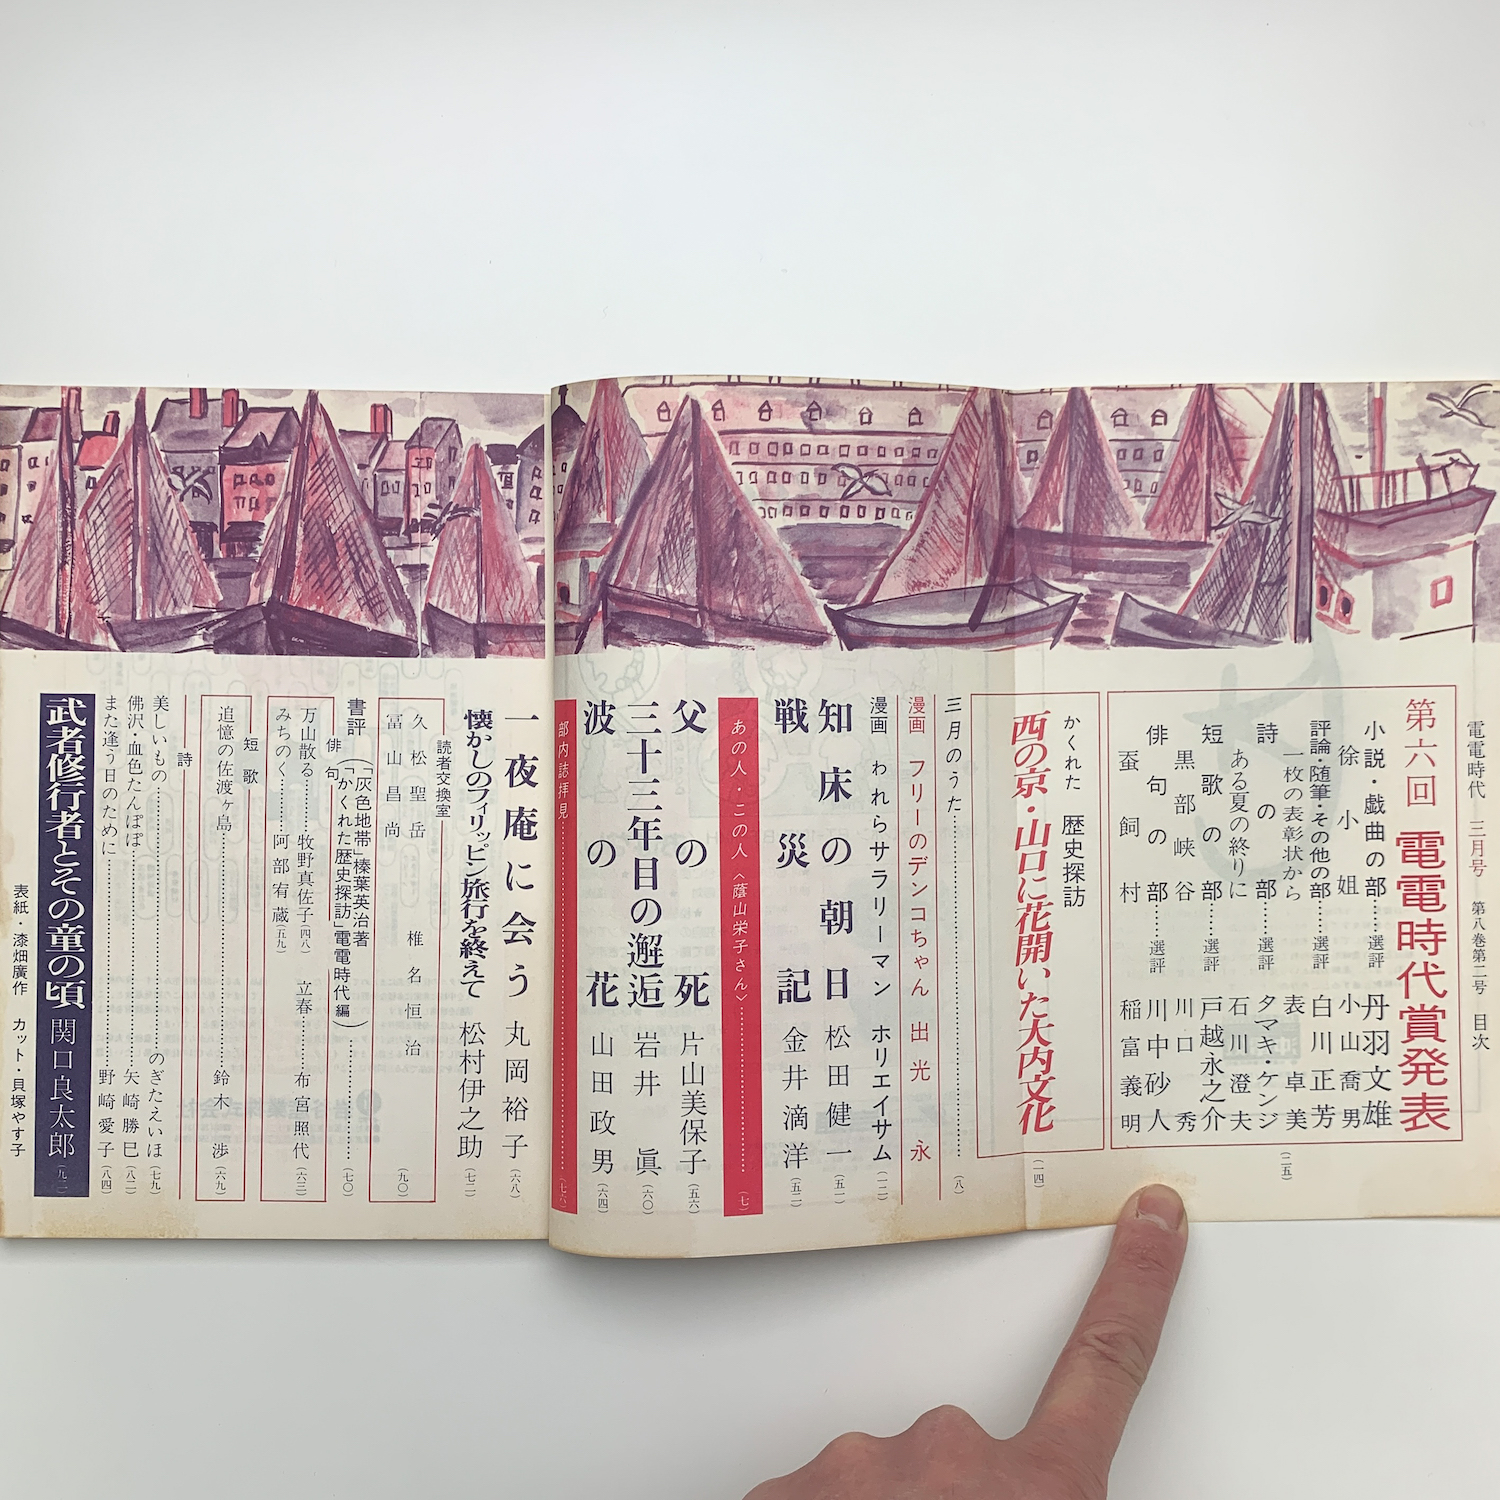 電電時代 三月号 第八巻第二号 目次
第六回 電電時代賞発表
小説・戯曲の部……選評 丹羽文雄
徐小姐 小山喬男
評論・随筆・その他の部……選評 白川正芳
一枚の表彰状から 表卓美
詩の部……選評 タマキ・ケンジ
ある夏の終りに 石川澄夫
短歌の部……選評 戸越永之介
黒部峡谷 川口秀
俳句の部……選評 川中砂人
蚕飼村 稲富義明
(二五)
かくれた歴史探訪
西の京・山口に花開いた大内文化
(一四)
三月のうた……(八)
漫画 フリーのデンコちゃん 出光永
漫画 われらサラリーマン ホリエイサム (一二)
知床の朝日 松田健一 (五一)
戦災記 金井滴洋 (五二)
あの人・この人〈蔭山栄子さん〉……(七)
父の死 片山美保子 (五六)
三十三年目の邂逅 岩井眞 (六〇)
波の花 山田政男 (六四)
部内誌拝見……(七六)
一夜庵に会う 丸岡裕子 (六八)
懐かしのフィリッピン旅行を終えて 松村伊之助 (七二)
読者交換室
久松聖岳 椎名恒治
冨山昌尚
(九〇)
書評(「灰色地帯」榛葉英治著
「かくれた歴史探訪」電電時代編)……(七〇)
俳句
万山散る……牧野真佐子(四八) 立春……布宮照代
みちのく……阿部宥蔵(五九)
(六三)
短歌
追憶の佐渡ヶ島……鈴木渉 (六九)
詩
美しいもの……のぎたえいほ (七九)
佛沢・血色たんぽぽ……矢崎勝巳 (八二)
また逢う日のために……野崎愛子 (八四)
武者修行者とその童の頃 関口良太郎 (九二)
表紙・漆畑廣作 カット・貝塚やす子